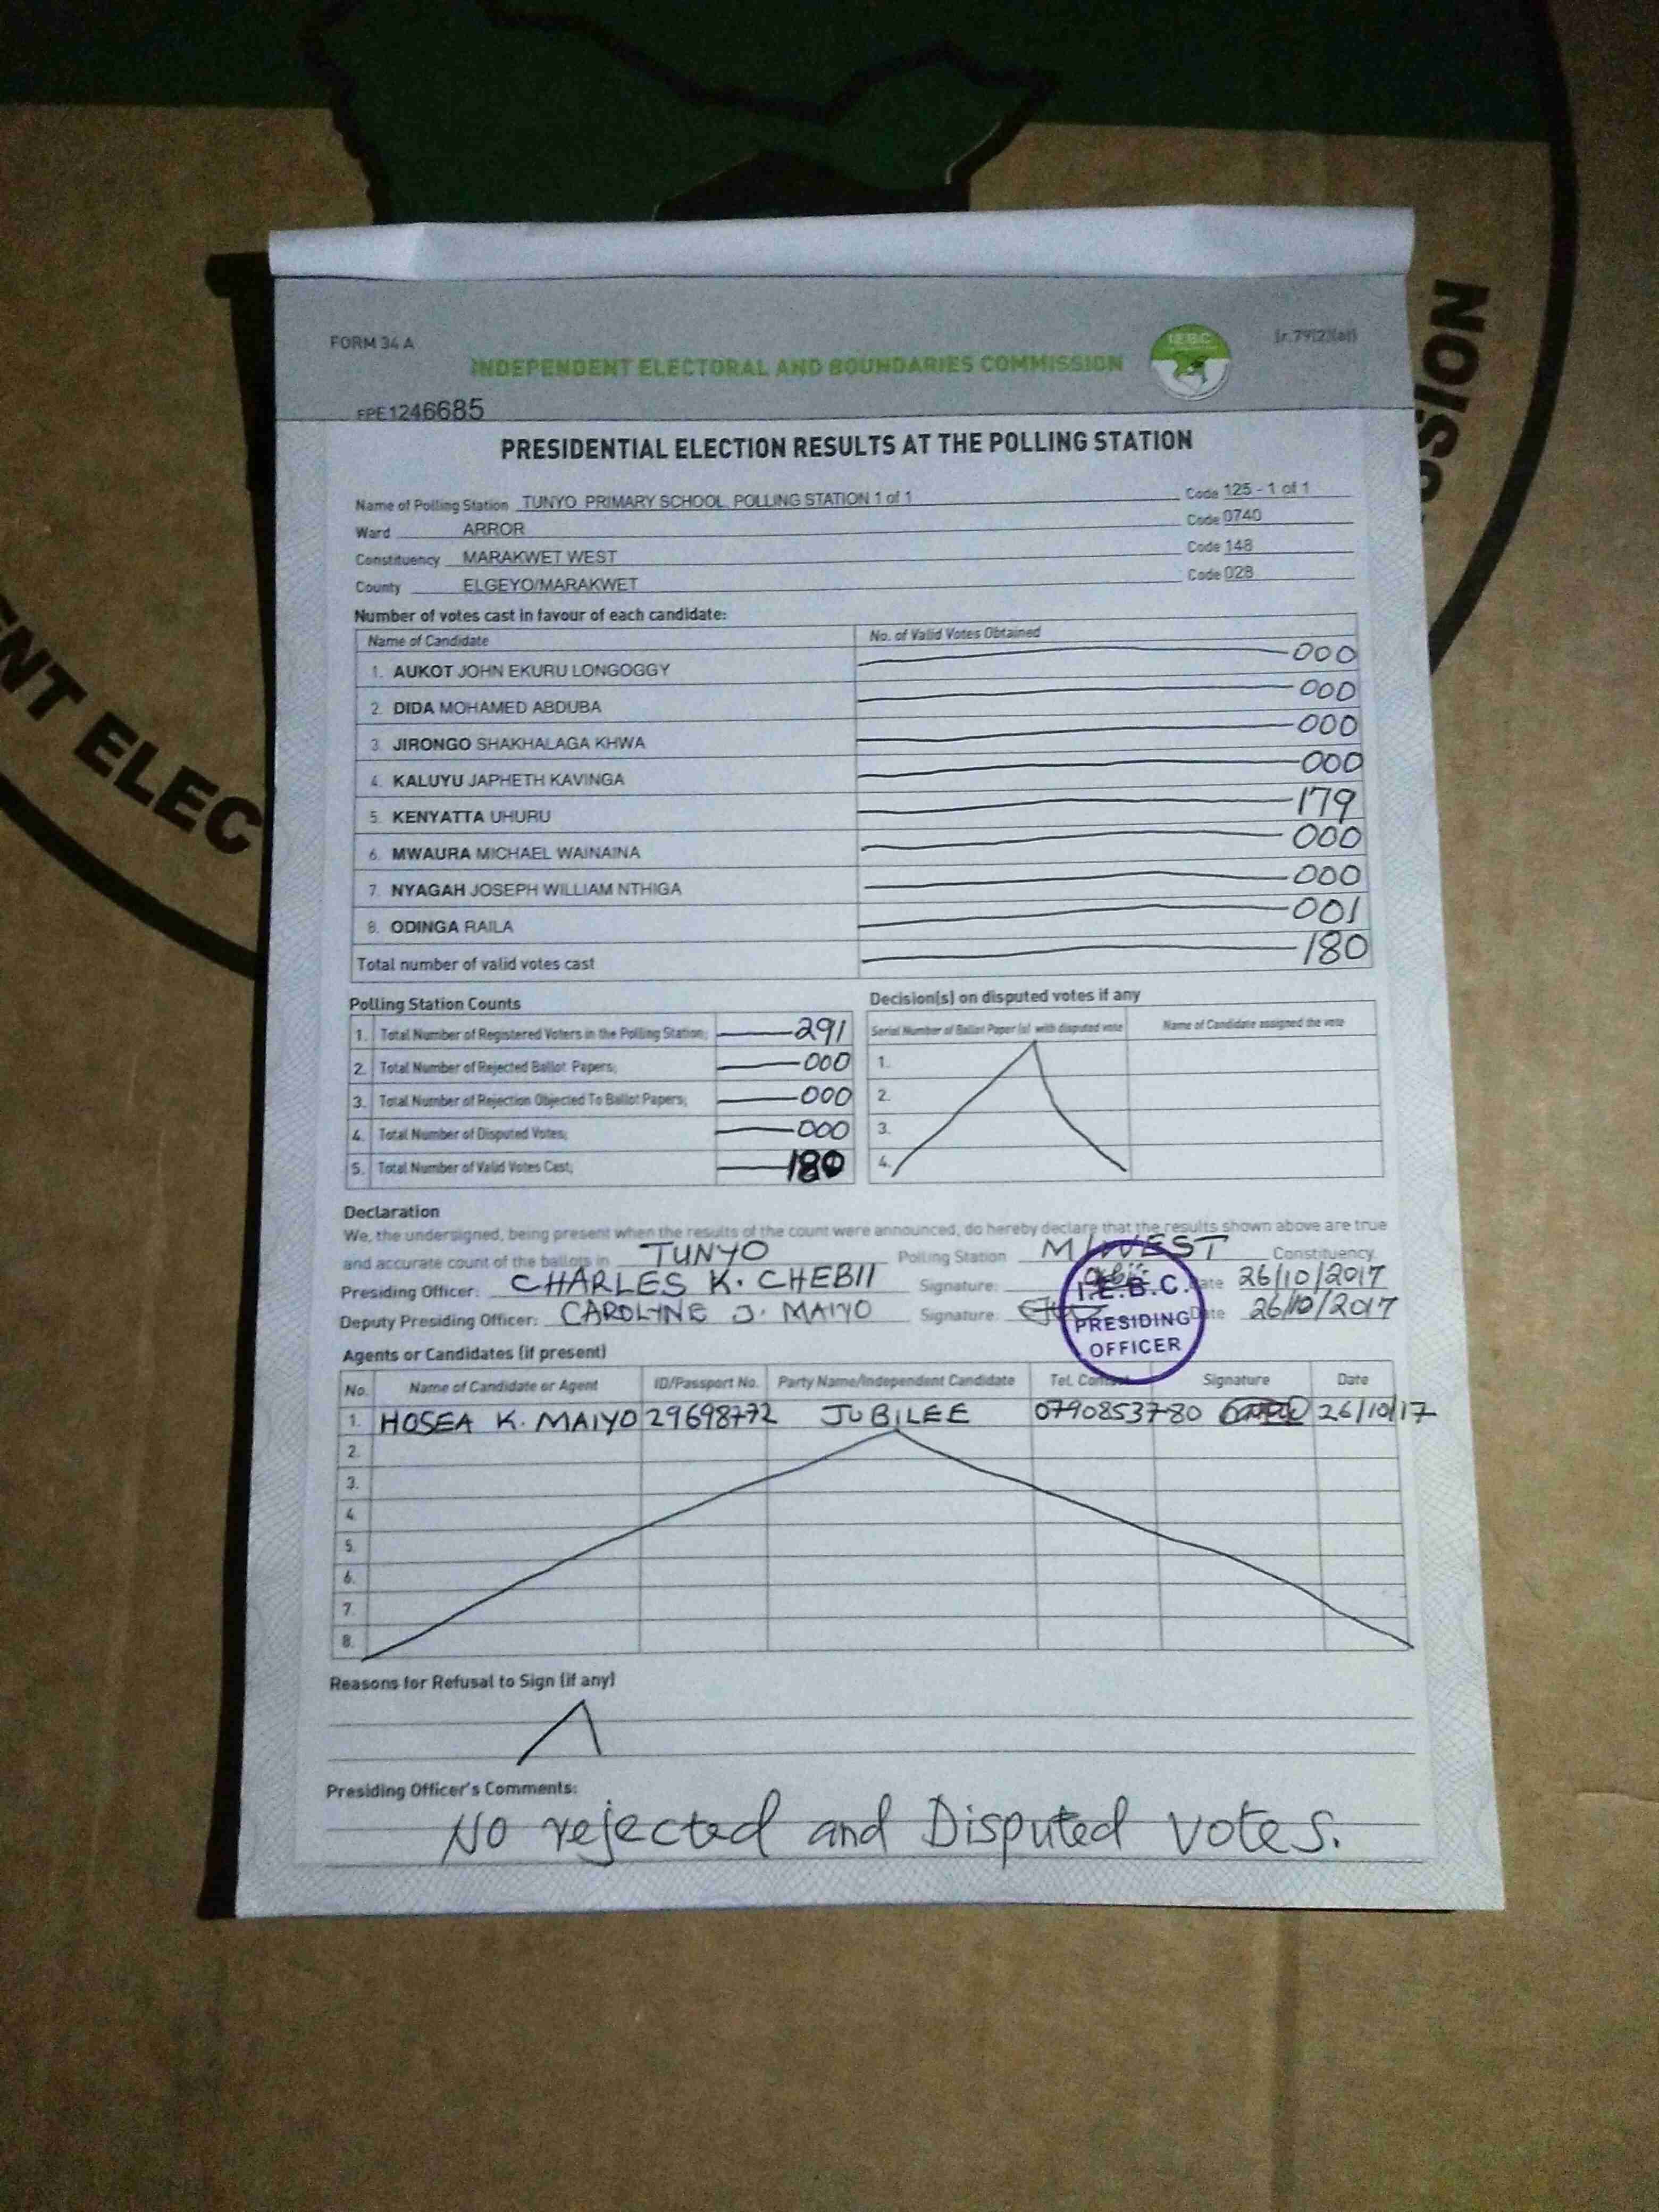 FORM 34 A
(r.79(2)(a))
INDEPENDENT ELECTORAL AND BOUNDARIES COMMISSION
IEBC
EPE1246685
PRESIDENTIAL ELECTION RESULTS AT THE POLLING STATION
Name of Polling Station TUNYO PRIMARY SCHOOL POLLING STATION 1 of 1 Code 125 - 1 of 1
Ward ARROR Code 0740
Constituency MARAKWET WEST Code 148
County ELGEYO/MARAKWET Code 028
Number of votes cast in favour of each candidate:
Name of Candidate No. of Valid Votes Obtained
1. AUKOT JOHN EKURU LONGOGGY 000
2. DIDA MOHAMED ABDUBA 000
3. JIRONGO SHAKHALAGA KHWA 000
4. KALUYU JAPHETH KAVINGA 000
5. KENYATTA UHURU 179
6. MWAURA MICHAEL WAINAINA 000
7. NYAGAH JOSEPH WILLIAM NTHIGA 000
8. ODINGA RAILA 001
Total number of valid votes cast 180
Polling Station Counts
1. Total Number of Registered Voters in the Polling Station; 291
2. Total Number of Rejected Ballot Papers; 000
3. Total Number of Rejection Objected To Ballot Papers; 000
4. Total Number of Disputed Votes; 000
5. Total Number of Valid Votes Cast; 180
Decision(s) on disputed votes if any
Serial Number of Ballot Paper (s) with disputed vote Name of Candidate assigned the vote
1.
2.
3.
4.
Declaration
We, the undersigned, being present when the results of the count were announced, do hereby declare that the results shown above are true
and accurate count of the ballots in TUNYO Polling Station M/WEST Constituency.
Presiding Officer: CHARLES K. CHEBII Signature: Date 26/10/2017
Deputy Presiding Officer: CAROLYNE J. MAIYO Signature: Date 26/10/2017
I.E.B.C.
PRESIDING
OFFICER
Agents or Candidates (if present)
No. Name of Candidate or Agent ID/Passport No. Party Name/Independent Candidate Tel. Contact Signature Date
1. HOSEA K. MAIYO 29698772 JUBILEE 0790853780 26/10/17
2.
3.
4.
5.
6.
7.
8.
Reasons for Refusal to Sign (if any)
Presiding Officer's Comments:
No rejected and Disputed votes.
ENT ELEC
SSION